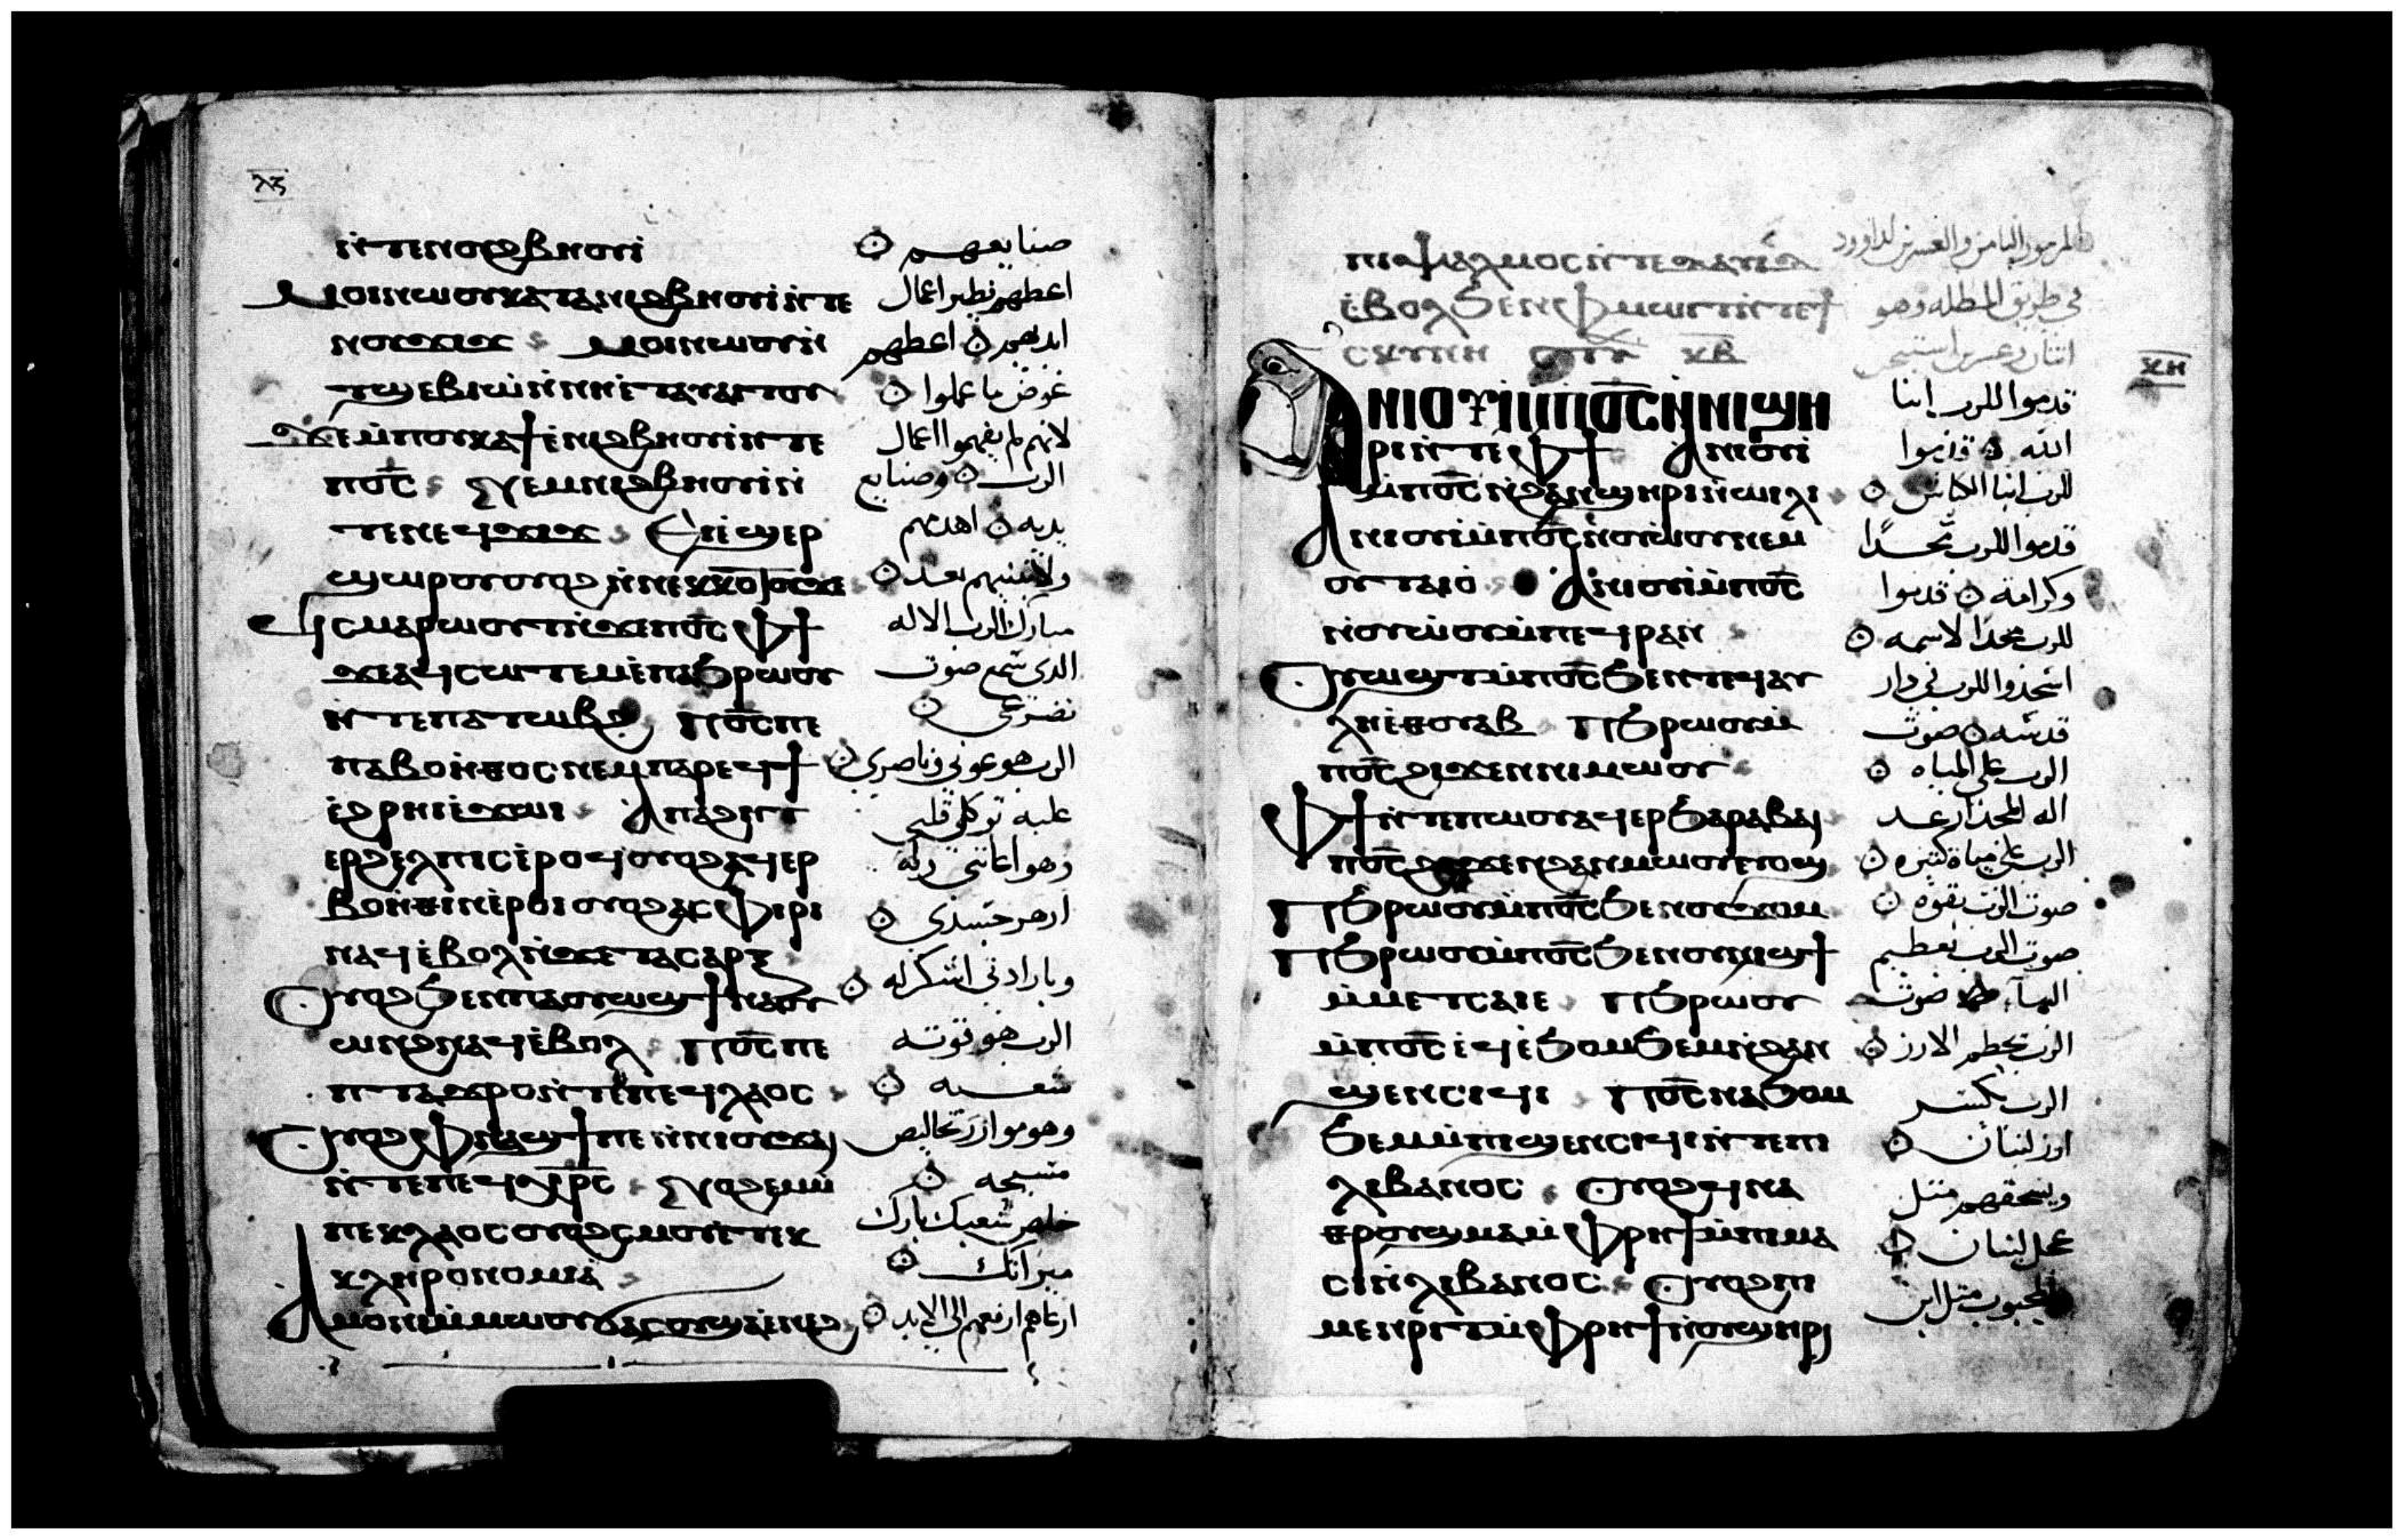 ⲗⲍ
ⲛ̀ⲧⲉⲛⲟⲩϩⲃⲏⲟⲩⲓ صنايعهم
ⲙⲟⲓⲛⲱⲟⲩⲕⲁⲧⲁⲛⲓϩⲃⲏⲟⲩⲓ̀ⲛ̀ⲧⲉ اعطهم نظير اعمال
ⲛⲟⲩϫⲓϫ ⲙⲟⲓⲛⲱⲟⲩⲛ̀ ايديهم اعطهم
ⲧϣⲉⲃⲓⲱ̀ⲛ̀ⲛⲏⲉ̀ⲧⲁⲩⲁⲓⲧⲟⲩ عوض ما عملوا
ϫⲉⲙ̀ⲡⲟⲩⲕⲁϯⲉ̀ⲛⲓϩⲃⲏⲟⲩⲓ̀ⲛ̀ⲧⲉ لانهم لم يفهموا اعمال
ⲡⲟ̅ⲥ̅ ⲛⲉⲙⲛⲓϩⲃⲏⲟⲩⲓ̀ⲛ̀ الرب وصنايع
ⲧⲉⲛⲉϥϫⲓϫ ⲉⲕⲉ̀ϣⲉⲣ يديه اهدمهم
ϣⲱⲣⲟⲩⲟⲩⲟϩ ⲛ̀ⲛⲉⲕⲕⲟⲧⲟⲩϫⲉ ولا تبنيهم بعد
ϥ̀ⲥⲙⲁⲣⲱⲟⲩⲧⲛ̀ϫⲉⲡⲟ̅ⲥ̅ ⲫϯ مبارك الرب الاله
ϫⲉⲁϥⲥⲱⲧⲉⲙⲉ̀ⲡϧⲣⲱⲟⲩ الدى سمع صوت
ⲛ̀ⲧⲉⲡⲁⲧⲱⲃϩ ⲡⲟ̅ⲥ̅ⲡⲉ تضرعى
ⲡⲁⲃⲟⲏⲑⲟⲥⲛⲉⲙⲡⲁⲣⲉϥϯ الرب هو عوني وناصري
ⲉ̀ϩⲣⲏⲓⲉ̀ϫⲱⲓ ⲁ̀ⲡⲁϩⲏⲧ عليه توكل قلبى
ⲉⲣϩⲉⲗⲡⲓⲥⲉ̀ⲣⲟϥⲟⲩⲟϩⲁϥⲉⲣ
ⲃⲟⲏⲑⲓⲛⲉ̀ⲣⲟⲓ ⲟⲩⲟϩⲁⲥⲫⲓⲣⲓ ازهر جسدى
ⲛⲁϥⲉ̀ⲃⲟⲗⲛ̀ϫⲉⲧⲁⲥⲁⲣⲝ
ⲟⲩⲟϩϧⲉⲛⲡⲁⲟⲩⲱϣϯⲛⲁⲟⲩ وبارادتى اشكر له
ⲱⲛϩⲛⲁϥⲉ̀ⲃⲟⲗ ⲡⲟ̅ⲥ̅ⲡⲉ الرب هو قوته
ⲡⲧⲁϫⲣⲟⲛ̀ⲧⲉⲡⲉϥⲗⲁⲟⲥ شعبه
ⲟⲩⲟϩ ⲛ̀ϯⲛⲁϣϯⲡⲉ ⲛ̀ⲛⲓⲟⲩϫⲁⲓ
ⲛ̀ⲧⲉⲡⲉϥⲭⲣ̅ⲥ̅ ⲛⲟϩⲉⲙⲙ̀ مسيحه
ⲡⲉⲕⲗⲁⲟⲥⲟⲩⲟϩⲥⲙⲟⲩⲉ̀ⲧⲉⲕ خلص شعبك بارك
ⲕⲗⲏⲣⲟⲛⲟⲙⲓⲁ ميراثك
ⲁⲙⲟⲛⲓⲙ̀ⲙⲱⲟⲩϭⲁⲥⲟⲩϣⲁⲉ̀ⲛⲉϩ ارعاهم ارفعهم الى الابد
ⲡⲓⲯⲁⲗⲙⲟⲥⲛ̀ⲧⲉⲇⲁⲩⲓⲇ المزمور الثامن والعشرين لداوود
ⲉ̀ⲃⲟⲗϧⲉⲛⲫⲙⲱⲓⲧⲛ̀ⲧⲉϯ في طريق المظله وهو
ⲥⲕⲩⲛⲏ ⲥⲧⲭ ⲕ̅ⲃ̅
ⲕ̅ⲏ̅
ⲁⲛⲓⲟⲩⲓ̀ⲙ̀ⲡⲟ̅ⲥ̅ⲛ̀ⲛⲓϣⲏ قدموا للرب ابنا
ⲣⲓⲛ̀ⲧⲉⲫϯ ⲁⲛⲓⲟⲩⲓ̀ الله قدموا
ⲙ̀ⲡⲟ̅ⲥ̅ⲛ̀ϩⲁⲛϣⲏⲣⲓⲛ̀ⲱⲓⲗⲓ للرب ابنا الكباش
ⲁⲛⲓⲟⲩⲓ̀ⲙ̀ⲡⲟ̅ⲥ̅ⲛ̀ⲟⲩⲱⲟⲩⲛⲉⲙ قدموا للرب مجدًا
ⲟⲩⲧⲁⲓⲟ̀ ⲁⲛⲓⲟⲩⲓ̀ⲙ̀ⲡⲟ̅ⲥ̅ وكرامه قدموا
ⲛ̀ⲟⲩⲱ̀ⲟⲩⲙ̀ⲡⲉϥⲣⲁⲛ للرب مجدا لاسمه
ⲟⲩⲱϣⲧⲙ̀ⲡⲟ̅ⲥ̅ϧⲉⲛⲧⲉϥⲁⲩ اسجدوا للرب فى دار
ⲗⲏⲉⲑⲟⲩⲁⲃ ⲡϧⲣⲱⲟⲩⲙ̀ قدسه صوت
ⲡⲟ̅ⲥ̅ϩⲓϫⲉⲛⲛⲓⲙⲱⲟⲩ الرب على المياه
ⲫϯⲛ̀ⲧⲉⲡⲱⲟⲩⲁϥⲉⲣϧⲁⲣⲁⲃⲁⲓ اله المجد ارعد
ⲡⲟ̅ⲥ̅ϩⲓϫⲉⲛϩⲁⲛⲙⲱⲟⲩⲉⲩⲟϣ الرب على مياه كثيره
ⲡϧⲣⲱⲟⲩⲙ̀ⲡⲟ̅ⲥ̅ϧⲉⲛⲟⲩϫⲟⲙ صوت الرب بقوه
ⲡϧⲣⲱⲟⲩⲙ̀ⲡⲟ̅ⲥ̅ϧⲉⲛⲟⲩⲛⲓϣϯ صوت الرب بعظيم
ⲙ̀ⲙⲉⲧⲥⲁⲓⲉ ⲡϧⲣⲱⲟⲩ البهآء صوت
ⲙ̀ⲡⲟ̅ⲥ̅ⲉϥⲉ̀ϧⲟⲙϧⲉⲙⲛ̀ϩⲁⲛ الرب يحطم الارز
ϣⲉⲛⲥⲓϥⲓ ⲡⲟ̅ⲥ̅ⲛⲁϧⲟⲙ الرب يكسر
ϧⲉⲙⲙ̀ⲡⲓϣⲉⲛⲥⲓϥⲓⲛ̀ⲧⲉⲡⲓ ارز لبنان
ⲗⲓⲃⲁⲛⲟⲥ ⲟⲩⲟϩϥⲛⲁ ويسحقهم مثل
ⲑⲣⲟⲩϣⲙⲁⲙ̀ⲫⲣⲏϯⲙ̀ⲡⲓⲙⲁ عجل لبنان
ⲥⲓⲛ̀ⲗⲓⲃⲁⲛⲟⲥ ⲟⲩⲟϩⲡⲓ
ⲙⲉⲛⲣⲓⲧⲙ̀ⲫⲣⲏϯⲛ̀ⲟⲩϣⲏⲣⲓ المحبوب مثل ابن